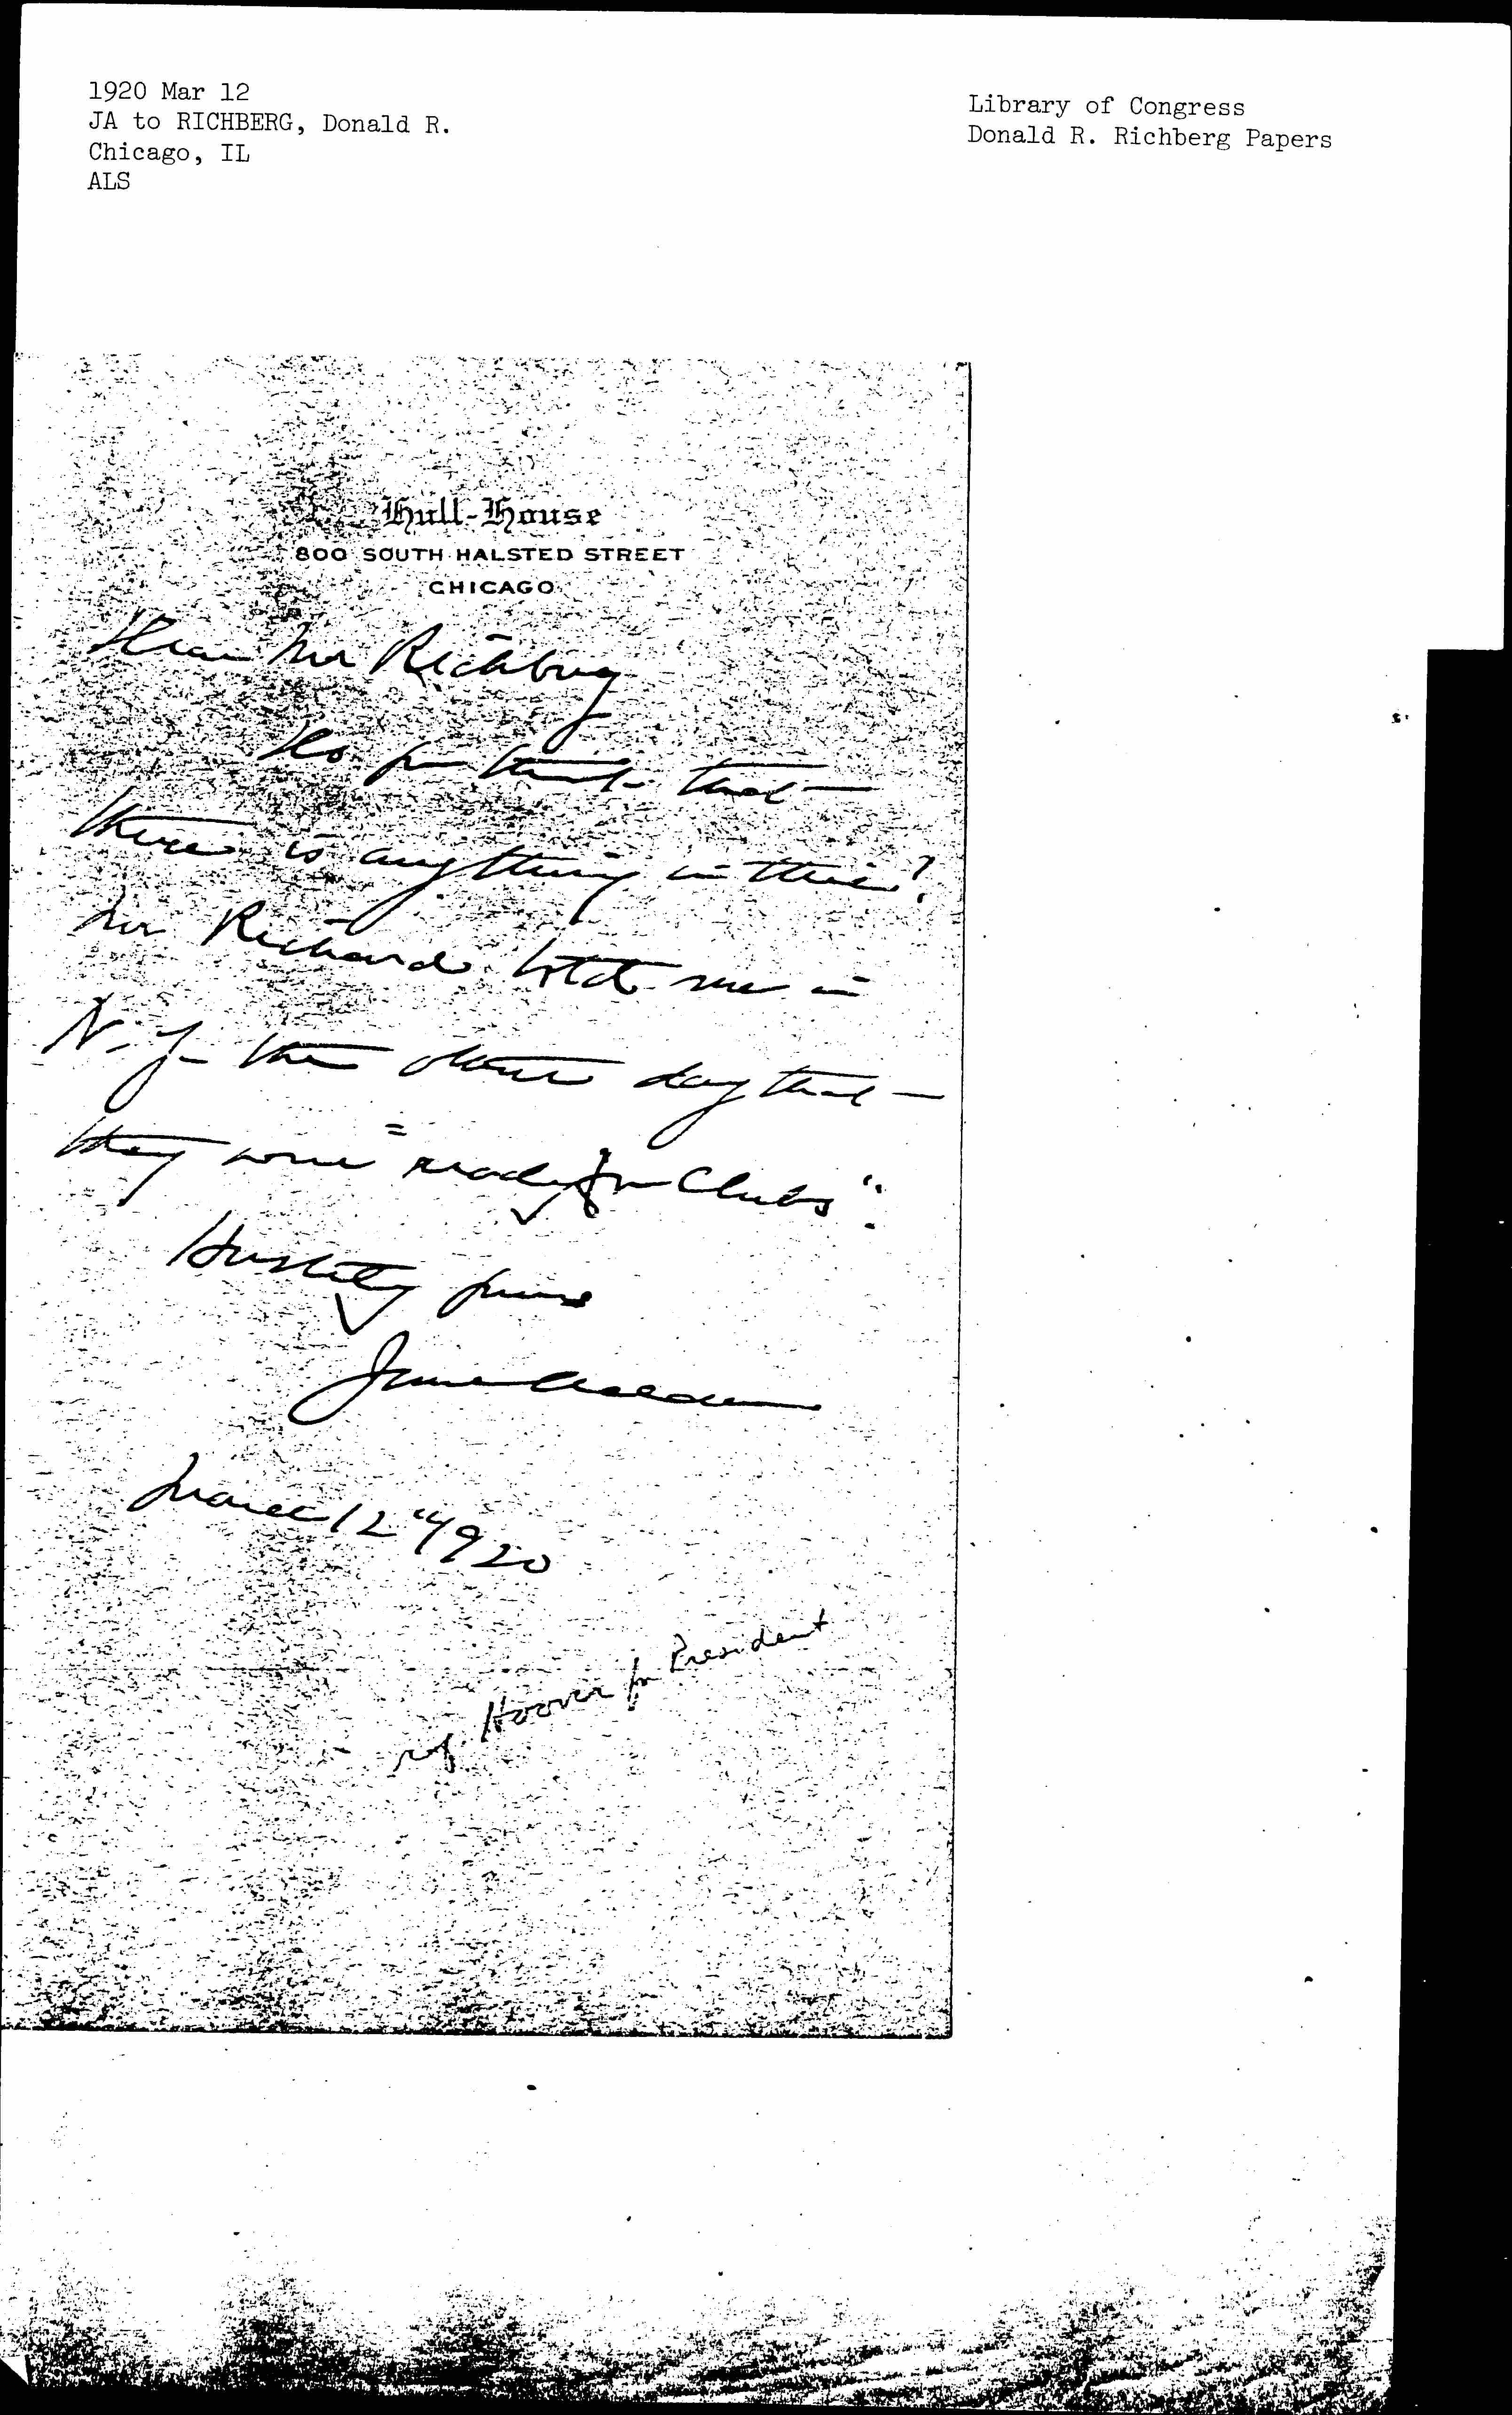 1920 Mar 12
JA to RICHBERG, Donald R.
Chicago, IL
ALS
Library of Congress
Donald R. Richberg Papers
Hull-House
800 SOUTH HALSTED STREET
CHICAGO
Dear Mr Richberg
Do you think that
there is anything in this?
Mr Richard told me in
N.Y. the other day that
they were "ready for Clubs".
Hastily yours
Jane Addams
March 12" 1920
ref. Hoover for President